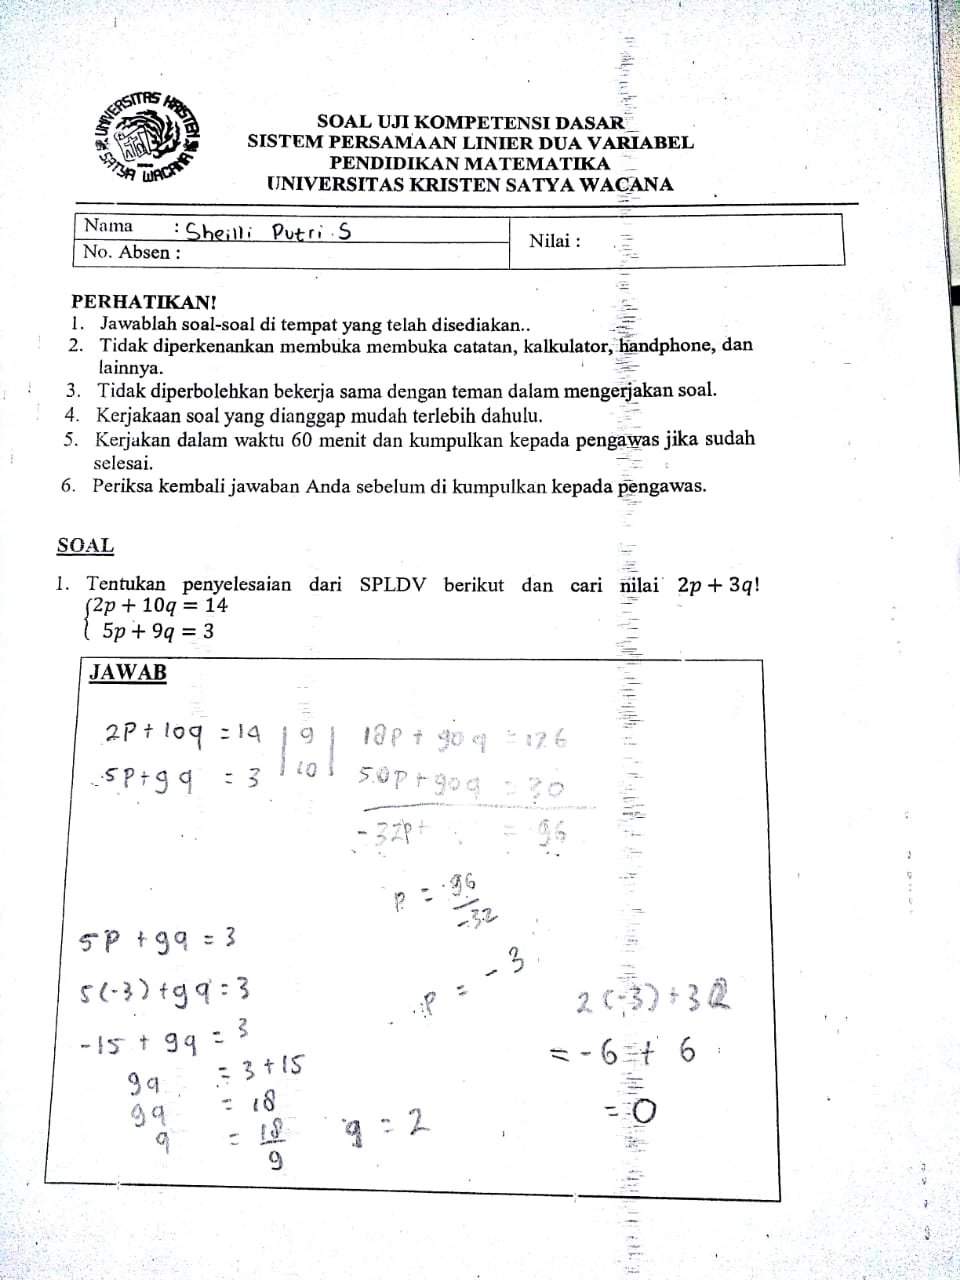 UNIVERSITAS KRISTEN
SATYA WACANA
SOAL UJI KOMPETENSI DASAR
SISTEM PERSAMAAN LINIER DUA VARIABEL
PENDIDIKAN MATEMATIKA
UNIVERSITAS KRISTEN SATYA WACANA
Nama : Sheilli Putri.S
No. Absen :
Nilai :
PERHATIKAN!
1. Jawablah soal-soal di tempat yang telah disediakan..
2. Tidak diperkenankan membuka membuka catatan, kalkulator, handphone, dan
lainnya.
3. Tidak diperbolehkan bekerja sama dengan teman dalam mengerjakan soal.
4. Kerjakaan soal yang dianggap mudah terlebih dahulu.
5. Kerjakan dalam waktu 60 menit dan kumpulkan kepada pengawas jika sudah
selesai.
6. Periksa kembali jawaban Anda sebelum di kumpulkan kepada pengawas.
SOAL
1. Tentukan penyelesaian dari SPLDV berikut dan cari nilai 2p + 3q!
2p + 10q = 14
5p + 9q = 3
JAWAB
2P + 10q = 14 | 9 | 18P + 90q = 126
5P + 9q = 3 | 10 | 50P + 90q = 30
-32P + = 96
P = 96
-32
P = -3
5P + 9q = 3
5(-3) + 9q = 3
-15 + 9q = 3
9q = 3 + 15
9q = 18
q = 18
9
q = 2
2(-3) + 3 2
= -6 + 6
= 0